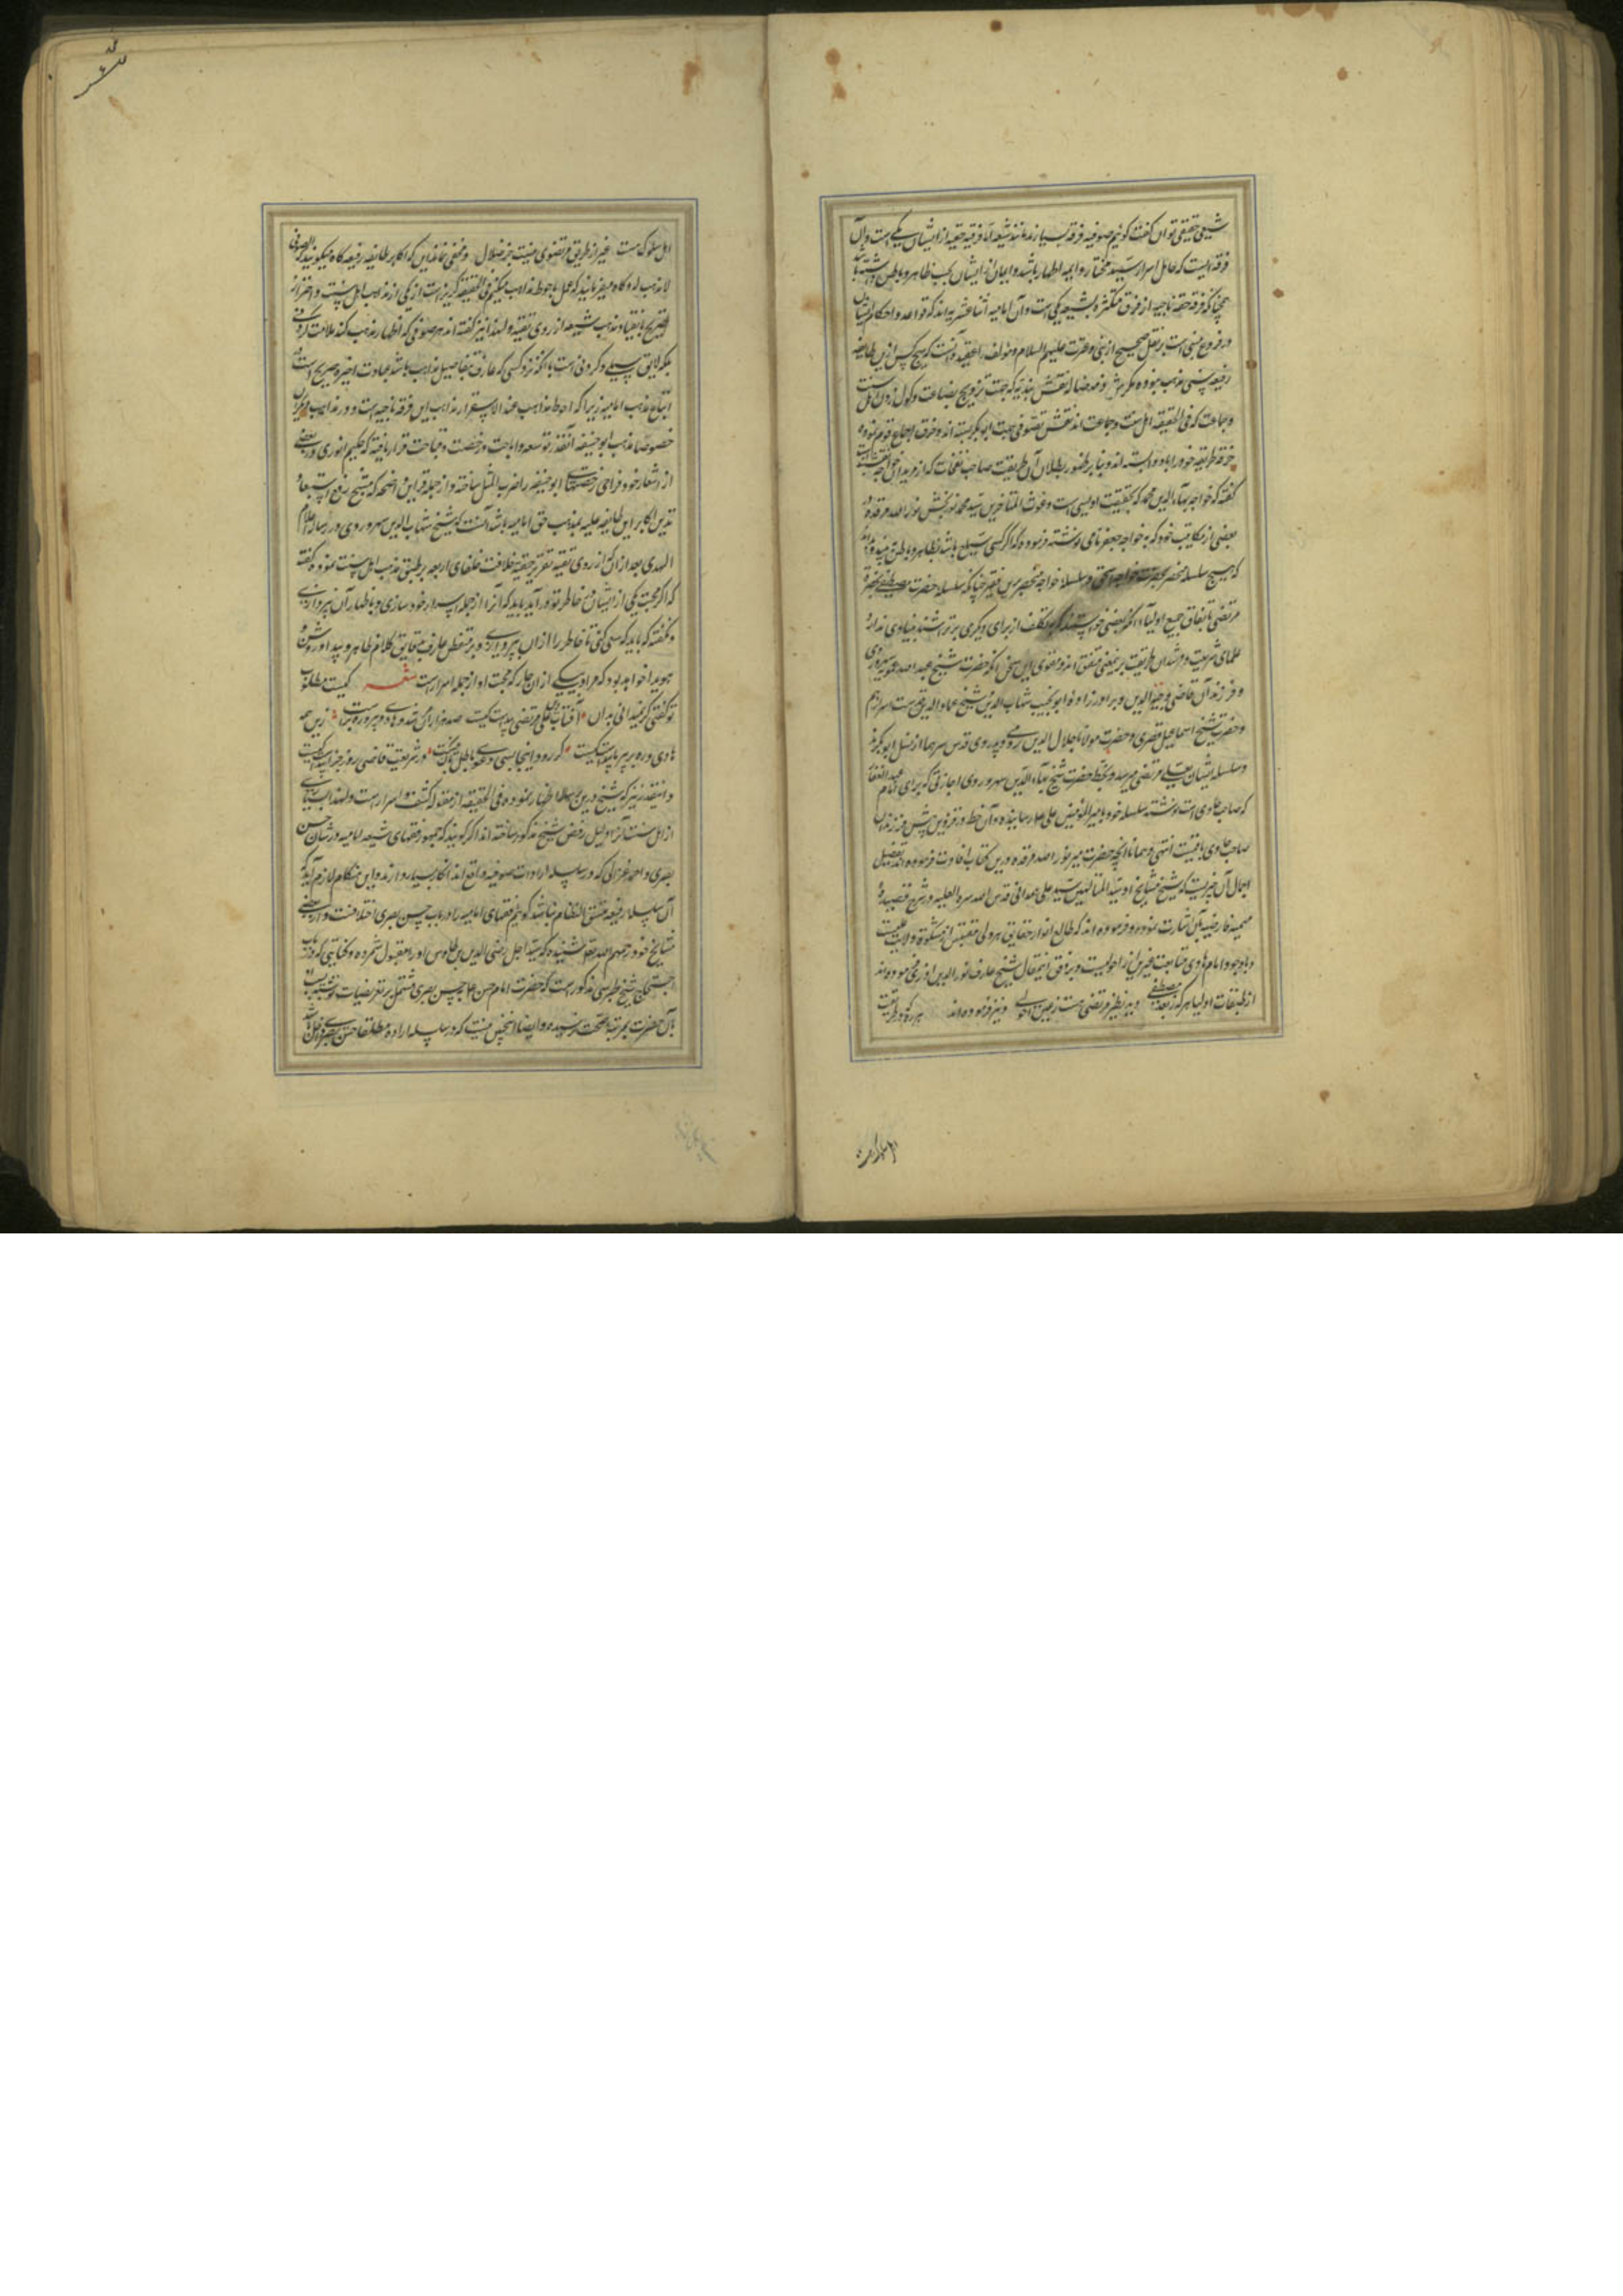 شیعی حقیقی توان گفت گوئیم صوفیه فرقه بسیارند مانند شیعه اما فرقه حقیه از ایشان یکی است و آن
فرقه ایست که حامل اسرار سید مختار و ایمه اطهار باشد و ایمان ایشان بحسب ظاهر و باطن
همچنانکه فرقه حقه ناجیه از فرق متکثره شیعه یکی است و آن امامیه اثنا عشریه اند که قواعد و احکام ایشان
در فروع مبنی است بر نقل صحیح از نبی و عترت علیهم السلام و مؤلف را عقیده آنست که هیچ کس ازین طایفه
رفیعه سنی مذهب نبوده مگر نقش بندیه که جهت ترویج بضاعت و گول زدن اهل سنت
و جماعت که فی الحقیقه اهل سنت و جماعت اند نقش تصوف بجهت ابوبکر بسته اند و خرق اجماع قوم نموده
خرقه طریقه خود را باو و بنابر ظهور بطلان آن طریقت صاحب نفحات که از مریدان خواجه نقشبند است
گفته که خواجه بهاء الدین محمد که بحقیقت اویسی است و غوث المتاخرین سید محمد نوربخش نور الله مرقده در
بعضی از مکاتیب خود که به خواجه جعفر نامی نوشته فرموده که اگر کسی باشد بظاهر و باطن میداند
که هیچ سلسله منحصر بحضرت خواجه اسحق و سلسله خواجه منحصر برین فقیر چنانکه سلسله حضرت مصطفی بحضرت
مرتضی باتفاق جمیع اولیا اگر بعضی خواستند که بتکلف از برای دیگری برتراشند بنیادی ندارد
علمای شریعت و مرشدان طریقت برین معنی متفق اند و مقوی این سخن آنکه حضرت شیخ عبد الله سهروردی
و فرزند آن قاضی وجیه الدین و برادرزاده ابو نجیب شهاب الدین و شیخ عماد الدین قدس اسرارهم
و حضرت شیخ اسماعیل قصری و حضرت مولانا جلال الدین رومی و پدر وی قدس سرهما از نسل ابوبکرند
و سلسله ایشان بعلی مرتضی میرسد و بخط حضرت شیخ بهاء الدین سهروردی اجازتی که برای امام عبد الغفار
که صاحب حاوی است نوشته سلسله خود بامیر المؤمنین علی رسانیده و آن خط در قزوین پیش فرزندان
صاحب حاوی یافتست انتهی و همانا آنچه حضرت میر نور الله مرقده درین کتاب افادت فرموده اند تفصیل
اجمال آن خبریست که شیخ مشایخ او سید المتالهین سید علی همدانی قدس الله سره العلیه در شرح قصیده
میمیه فارضیه بآن اشارت نموده و فرموده اند که طالع انوار حقایق هر ولی مقتبس از مشکوة ولایت علیست
و با وجود امام هادی متابعت غیر وی از احولیست و بر وفق این مقال شیخ عارف نور الدین آذری فرموده اند
از طبقات اولیا هر که بعد مصطفی دید نظیر مرتضی هست زعین احولی و نیز فرموده اند هر که در طریقت
اهل سلوک
اهل سلوک است غیر از طریق مرتضوی نیست جز ضلال و مخفی نماند این که اکابر طایفه رفیعه گاه میگویند که الصوفی
لا مذهب له و گاه میفرمایند که عمل باحوط مذاهب میکنیم و فی الحقیقه گریز است از یکی از مذاهب اهل سنت و احتراز از
تصریح بانقیاد مذهب شیعه از روی تقیه و لهذا نیز گفته اند هر صوفی که اظهار مذهب کند ملامت کردنی
بلکه لایق سیلی و گردنی است با آنکه نزد کسی که عارف بتفاصیل مذاهب باشد عبارت اخیره صریح است در
اتباع مذهب امامیه زیرا که احوط مذاهب عند الاستقرار مذاهب این فرقه ناجیه است و در مذاهب دیگران
خصوصا مذهب ابو حنیفه آنقدر توسعه و اباحت و رخصت و قباحت قرار یافته که حکیم انوری در بعضی
از اشعار خود فراخی رخصتهای ابو حنیفه را ضرب المثل ساخته و از جمله قراین واضحه که مشبع رفع استبعاد
تدین اکابر این طایفه علیه بمذهب حق امامیه باشد آنست که شیخ شهاب الدین سهروردی در رساله اعلام
الهدی بعد از آن که از روی تقیه تقریر حقیه خلافت خلفای اربعه بر طبق مذهب اهل سنت نموده گفته
که اگر محبت یکی از ایشان بر خاطر تو در آید باید که آنرا از جمله اسرار خود سازی و باظهار آن نپردازی
و نگفته که باید که سعی کنی تا خاطر را از آن بپردازی و بر متفطن عارف بدقایق کلام ظاهر و پیدا و روشن و
هویدا خواهد بود که مراد یکی از آن چار که محبت او از جمله اسرار است شعر کیست مطلوب
تو گفتی گر نمیدانی بدان آفتاب علی مرتضی پیداست کیست صد هزاران رهزن
هادی و رهبر پیداست کیست گر رود اینجا بسی دعوی باطل باک نیست در شریعت قاضی روز جزا پیداست کیست
و اینقدر نیز که شیخ درین رساله اظهار نموده فی الحقیقه از مقوله کشف اسرار است و لهذا بسیاری
از اهل سنت آنرا دلیل رفض شیخ مذکور ساخته اند اگر گویند که جمهور فقهای شیعه امامیه در شان حسن
بصری و احمد غزالی که در سلسله ارادت صوفیه واقع اند انکار بسیار دارند و این هنگام لازم آید که
آن سلسله رفیعه متسق النظام نباشد گوئیم فقهای امامیه را در باب حسن بصری اختلافست و از بعضی
مشایخ خود رحمهم الله شنیده که سید اجل رضی الدین بن طاوس او را مقبول شمرده و کتابتی که در کتاب
احتجاج شیخ طبرسی مذکور است که حضرت امام حسن بحسن بصری مشتمل بر تعریضات نوشته نسبت آن
بآن حضرت بمرتبه صحت نرسیده و ایضا اینچنین نیست که در سلسله اراده مطلقا حسن بصری داخل باشد